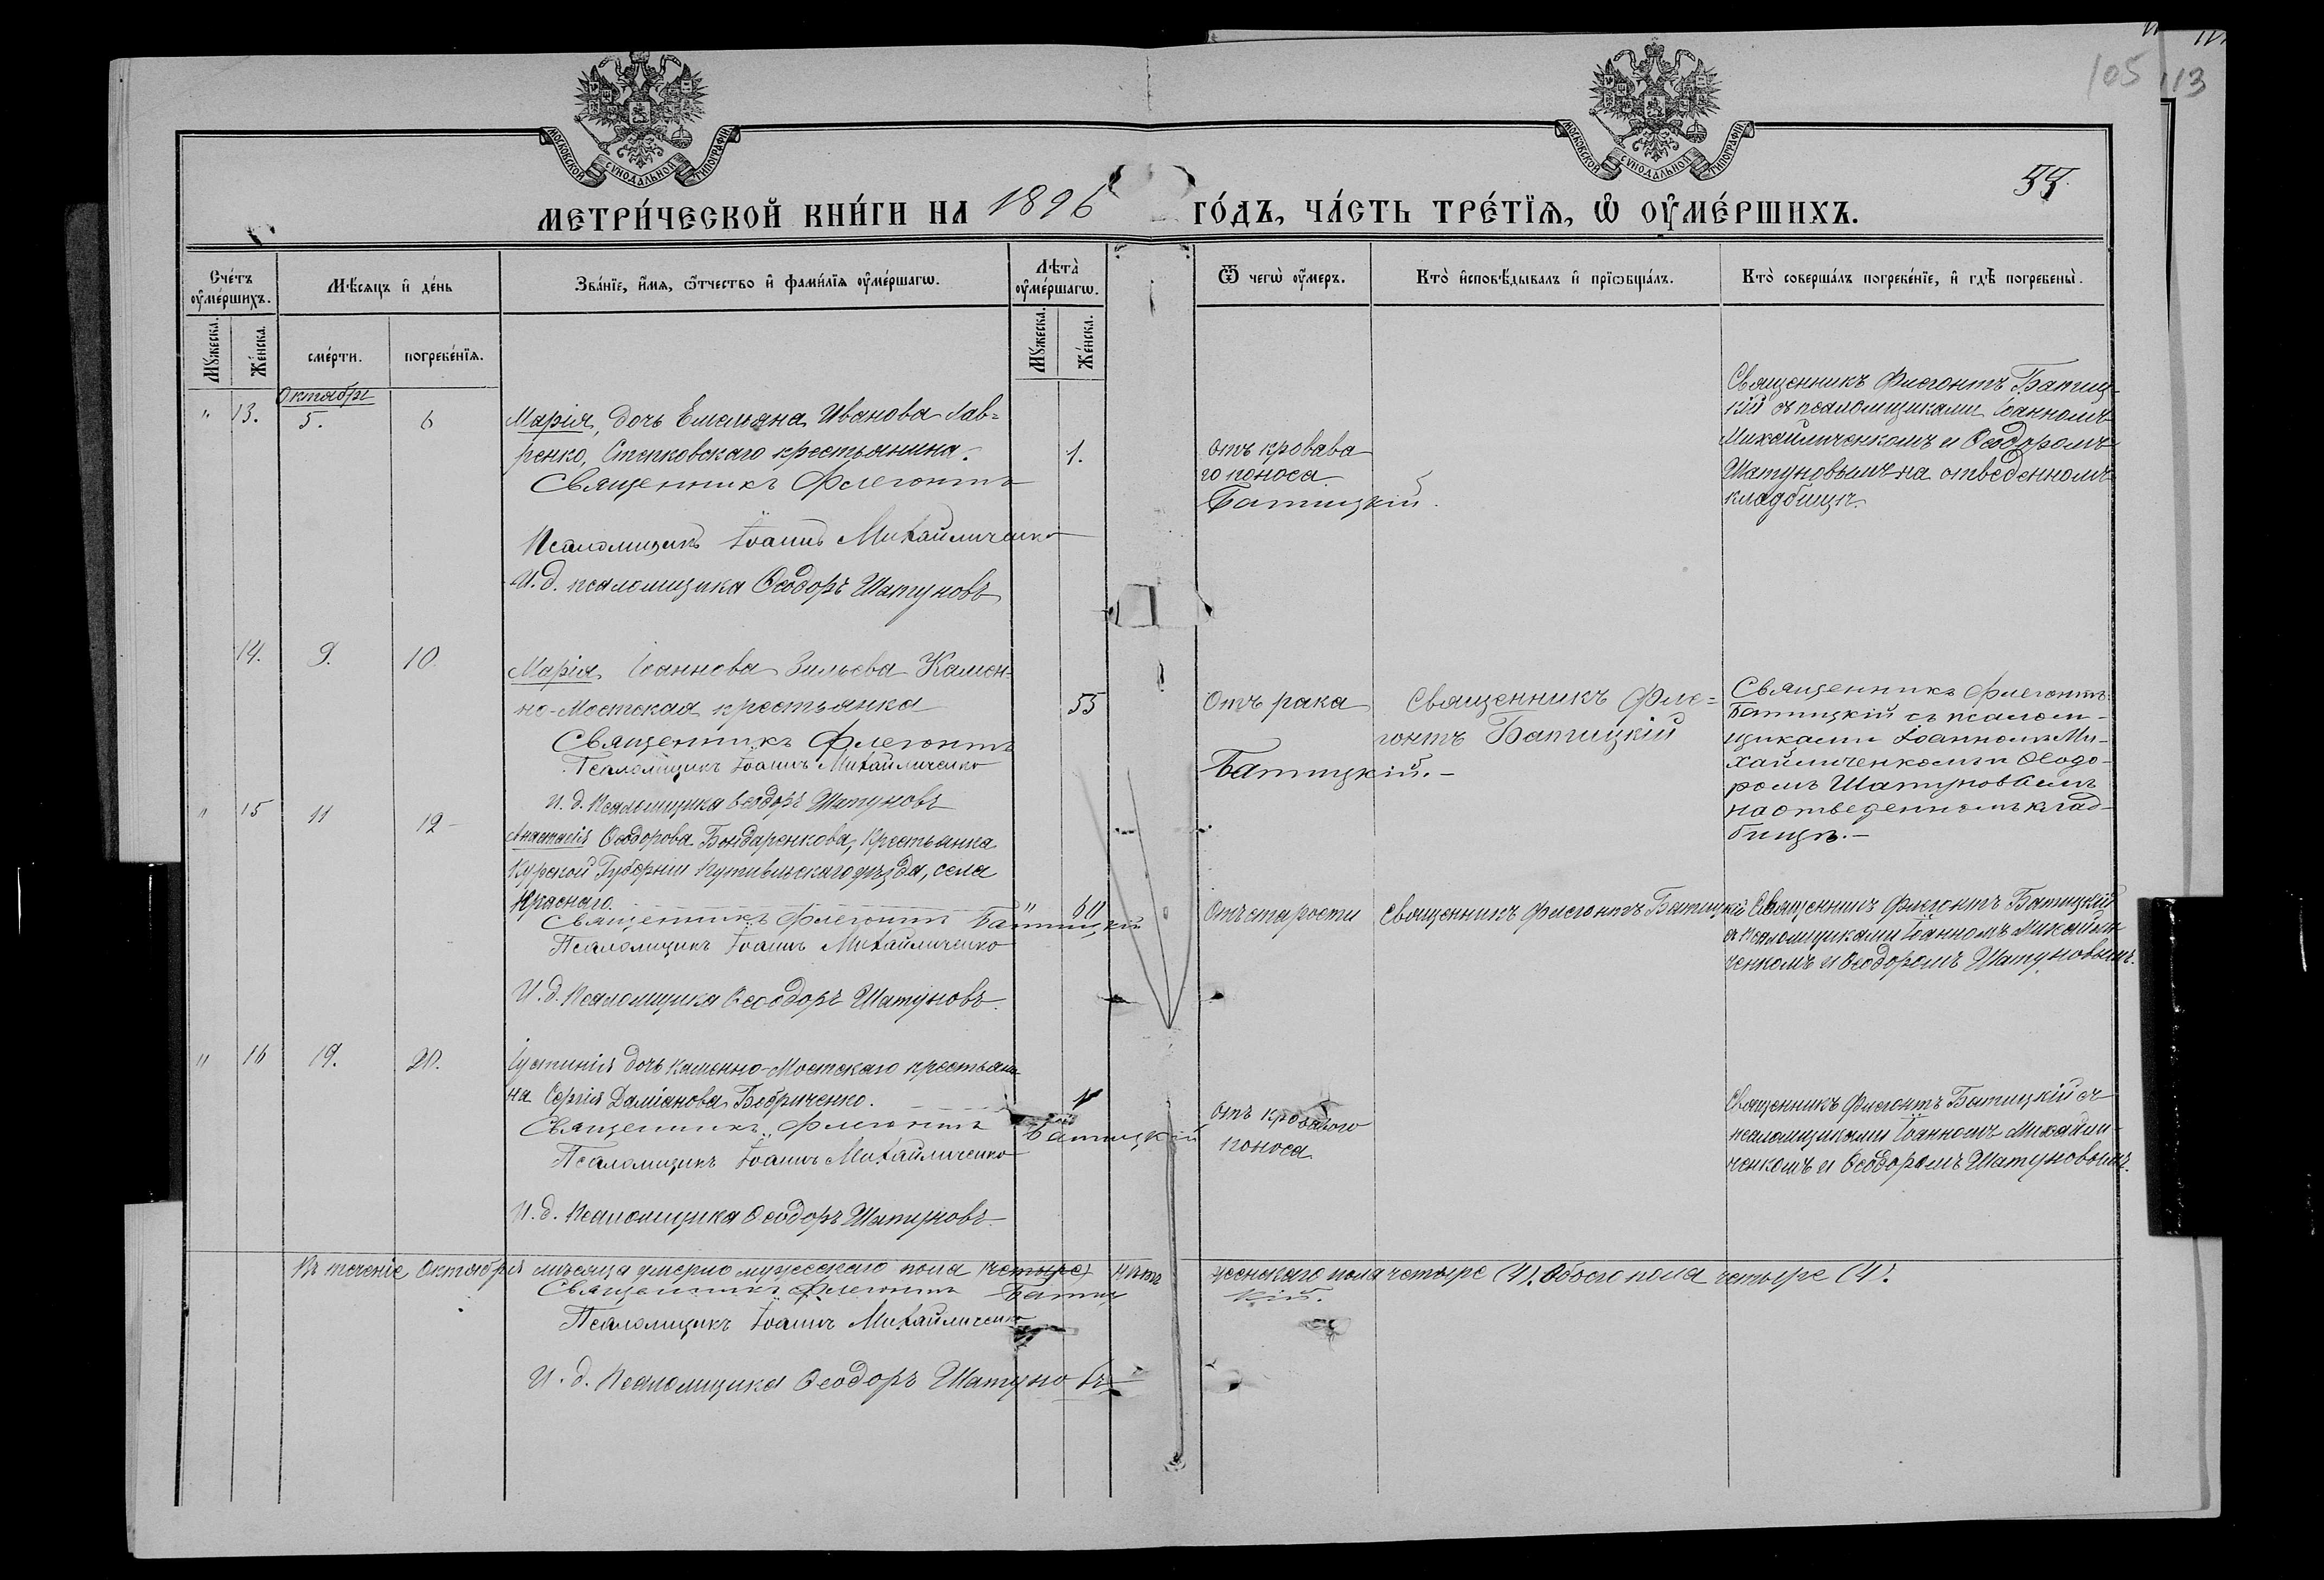 105 113
МОСКОВСКОЙ СУНОДАЛЬНОЙ ТИПОГРАФІИ
МОСКОВСКОЙ СУНОДАЛЬНОЙ ТИПОГРАФІИ
МЕТРИ́ЧЕСКОЙ КНИ́ГИ НА 1896 ГО́ДЪ, ЧА́СТЬ ТРЕ́ТІѦ, Ѡ ОУ҆МЕ́РШИХЪ.
Сче́тъ оу҆ме́ршихъ.
Мѣ́сѧцъ и҆ де́нь
Зва́нїе, и҆́мѧ, ѻ҆́тчество и҆ фами́лїѧ оу҆ме́ршагѡ.
Лѣта̀ оу҆ме́ршагѡ.
Ѿ чегѡ̀ оу҆́меръ.
Кто̀ и҆сповѣ́дывалъ и҆ прїѡбща́лъ.
Кто̀ соверша́лъ погребе́нїе, и҆ гдѣ̀ погребены̀.
Мꙋ́жеска.
Же́нска.
сме́рти.
погребе́нїѧ.
Мꙋ́жеска.
Же́нска.
Октябрь
" 13. 5. 6
Марія, дочь Емельяна Иванова Лав=
ренко, Степковскаго крестьянина. 1.
Священникъ Флегонтъ Батицкій.
Псаломщикъ Іоаннъ Михайличенко
И. д. псаломщика Ѳеодоръ Шатуновъ
Отъ кровава
го поноса
Священникъ Флегонтъ Батиц-
кій съ псаломщиками Іоанномъ
Михайличенкомъ и Ѳеодоромъ
Шатуновымъ на отведенномъ
кладбищѣ.
14. 9. 10
Марія Іоаннова Зильева Камен-
но-Мостская крестьянка 55
Священникъ Флегонтъ Батицкій.-
Псаломщикъ Іоаннъ Михайличенко
И. д. Псаломщика Ѳеодоръ Шатуновъ
Отъ рака
Священникъ Фле=
гонтъ Батицкій
Священникъ Флегонтъ
Батицкій съ псалом-
щиками Іоанномъ Ми-
хайличенкомъ и Ѳеодо-
ромъ Шатуновымъ
на отведенномъ клад-
бищѣ.-
" 15 11 12
Анастасія Ѳеодорова Бондаренкова, крестьянка
Курской Губерніи Путивльскаго уѣзда, села
Краснаго. " 60
Священникъ Флегонтъ Батицкій
Псаломщикъ Іоаннъ Михайличенко
И. д. Псаломщика Ѳеодоръ Шатуновъ.
Отъ старости
Священникъ Флегонтъ Батицкій
Священникъ Флегонтъ Батицкій
съ псаломщиками Іоанномъ Михайли
ченкомъ и Ѳеодоромъ Шатуновымъ.
" 16 19. 20.
Іустинія дочь каменно-Мостскаго крестьяни
на Сергія Даміанова Бобриченко.
Священникъ Флегонтъ Батицкій
Псаломщикъ Іоаннъ Михайличенко
И. д. Псаломщика Ѳеодоръ Шатуновъ
Отъ кроваваго
поноса
Священникъ Флегонтъ Батицкій съ
псаломщиками Іоанномъ Михайли-
ченкомъ и Ѳеодоромъ Шатуновымъ.
Въ теченіе Октября мѣсяца умерло мужескаго пола (четыре) нѣтъ женскаго пола четыре (4). Обоего пола четыре (4).
Священникъ Флегонтъ Батицкій.
Псаломщикъ Іоаннъ Михайличенко
И. д. Псаломщика Ѳеодоръ Шатуновъ